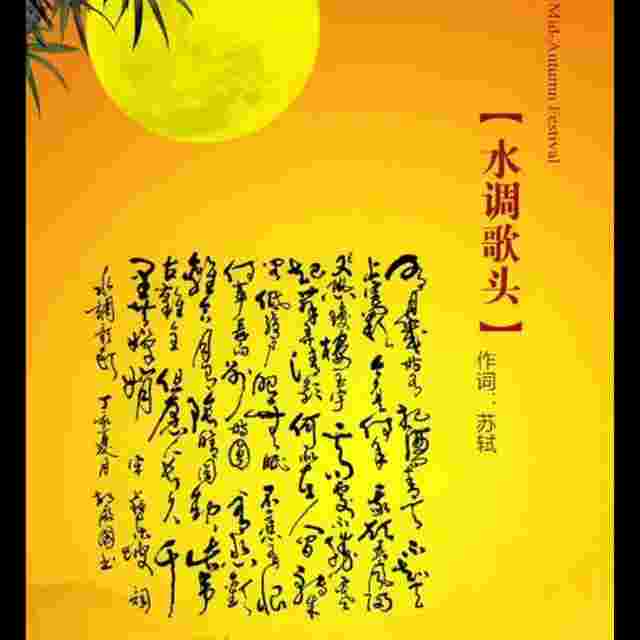 Mid-Autumn Festival
【水调歌头】
作词：苏轼
明月几时有把酒问青天不知天
上宫阙今夕是何年我欲乘风归
去又恐琼楼玉宇高处不胜寒
起舞弄清影何似在人间转朱
阁低绮户照无眠不应有恨
何事长向别时圆人有悲欢
离合月有阴晴圆缺此事
古难全但愿人长久千
里共婵娟 宋 苏东坡 词
水调歌头 丁亥夏月 书